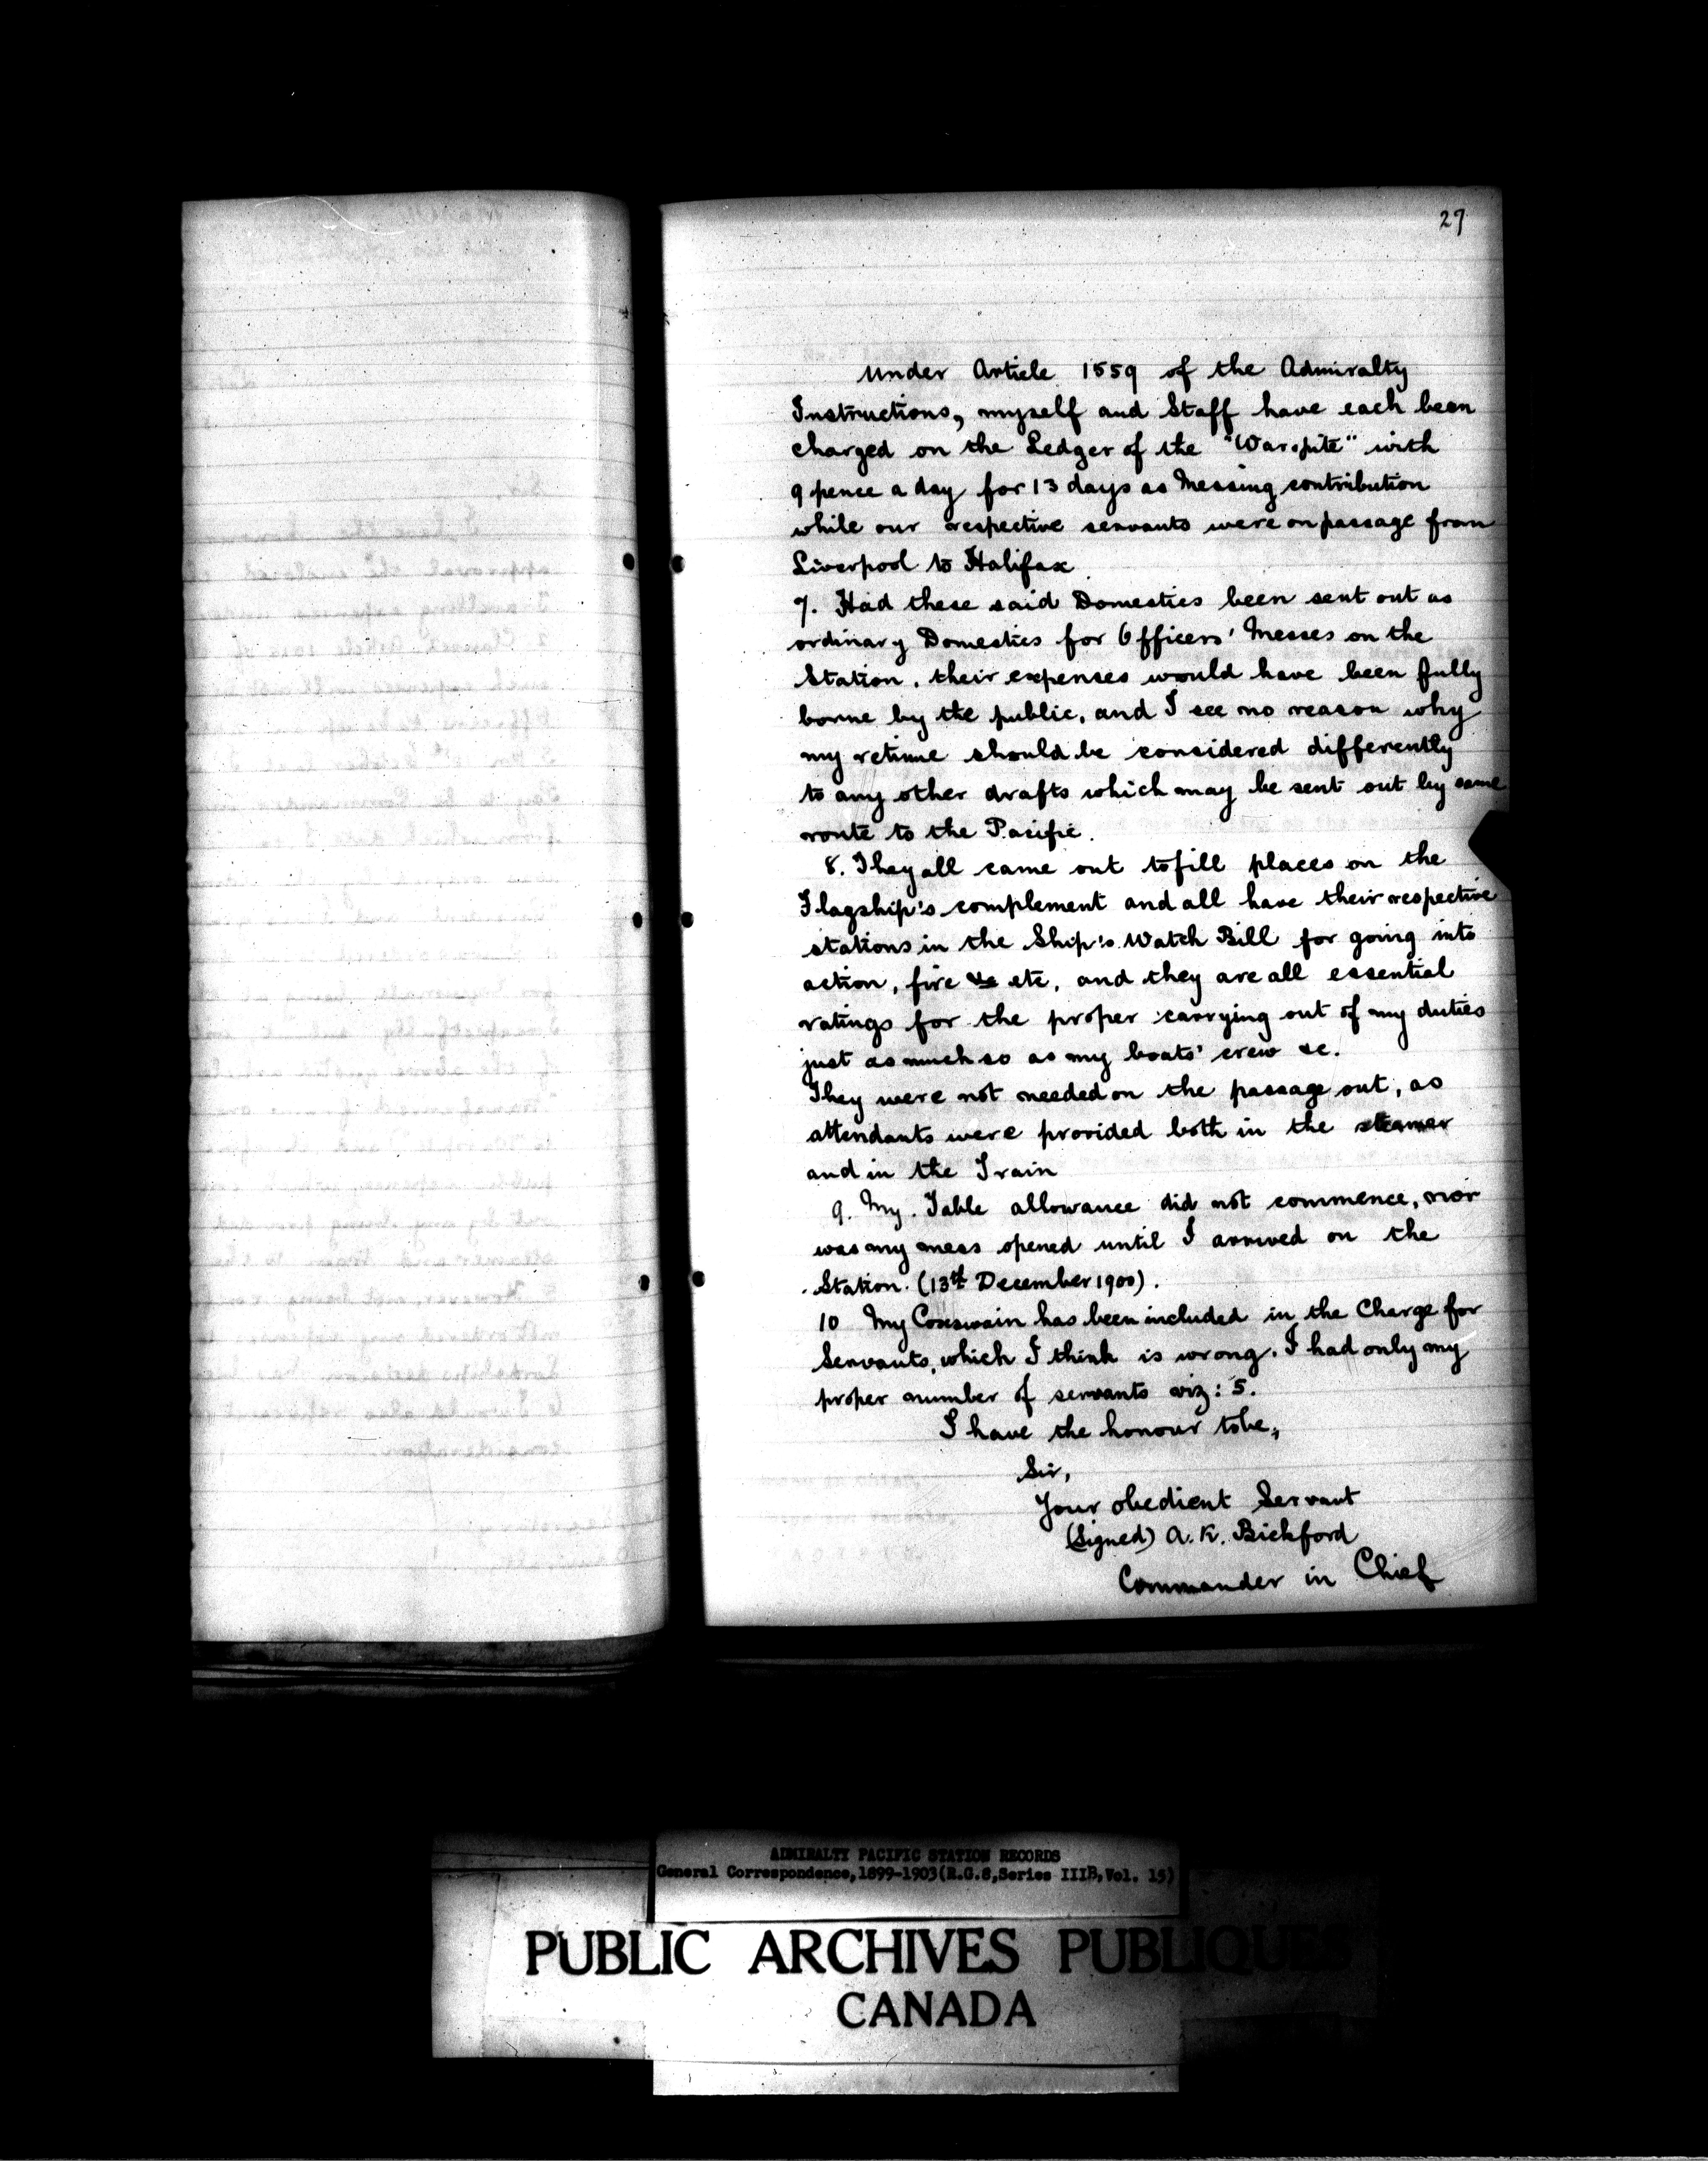 27
Under Article 1559 of the Admiralty
Instructions, myself and Staff have each been
charged on the Ledger of the "Warspite" with
9 pence a day for 13 days as Messing contribution
while our respective servants were on passage from
Liverpool to Halifax
7. Had these said Domestics been sent out as
ordinary Domestics for Officers' Messes on the
Station, their expenses would have been fully
borne by the public, and I see no reason why
my retinue should be considered differently
to any other drafts which may be sent out by same
route to the Pacific.
8. They all came out to fill places on the
Flagship's complement and all have their respective
stations in the Ship's Watch Bill for going into
action, fire &c etc, and they are all essential
ratings for the proper carrying out of my duties
just as much so as my boats' crew &c.
They were not needed on the passage out, as
attendants were provided both in the steamer
and in the Train
9. My Table allowance did not commence, nor
was my mess opened until I arrived on the
Station. (13th December 1900).
10 My Coxswain has been included in the Charge for
Servants, which I think is wrong. I had only my
proper number of servants viz: 5.
I have the honour to be,
Sir,
Your obedient Servant
(Signed) A. K. Bickford
Commander in Chief
ADMIRALTY PACIFIC STATION RECORDS
General Correspondence, 1899-1903 (R.G.8, Series IIIB, Vol. 15)
PUBLIC ARCHIVES PUBLIQUES
CANADA